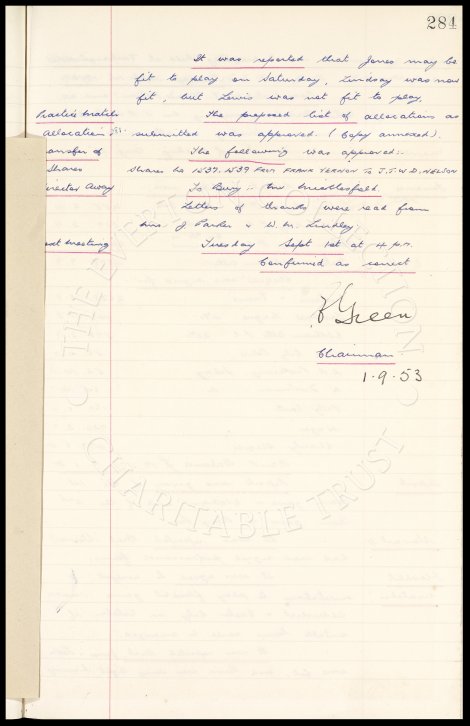 284
It was reported that Jones may be
fit to play on Saturday, Lindsay was now
fit, but Lewis was not fit to play.
Practice Matches The proposed list of allocations as
allocation submitted was approved. (Copy annexed).
ansfer of The following was approved:-
Shares Shares No 1537, 1539 FROM FRANK VERNON TO J.W.D. NELSON
irector Away To Bury:- Mr Micklesfield.
Letters of thanks were read from
Mrs. J Parker & W. M. Lindley
ext meeting Tuesday Sept 1st at 4 p.m.
Confirmed as correct
Green
Chairman
1.9.53
THE EVERTON COLLECTION
CHARITABLE TRUST